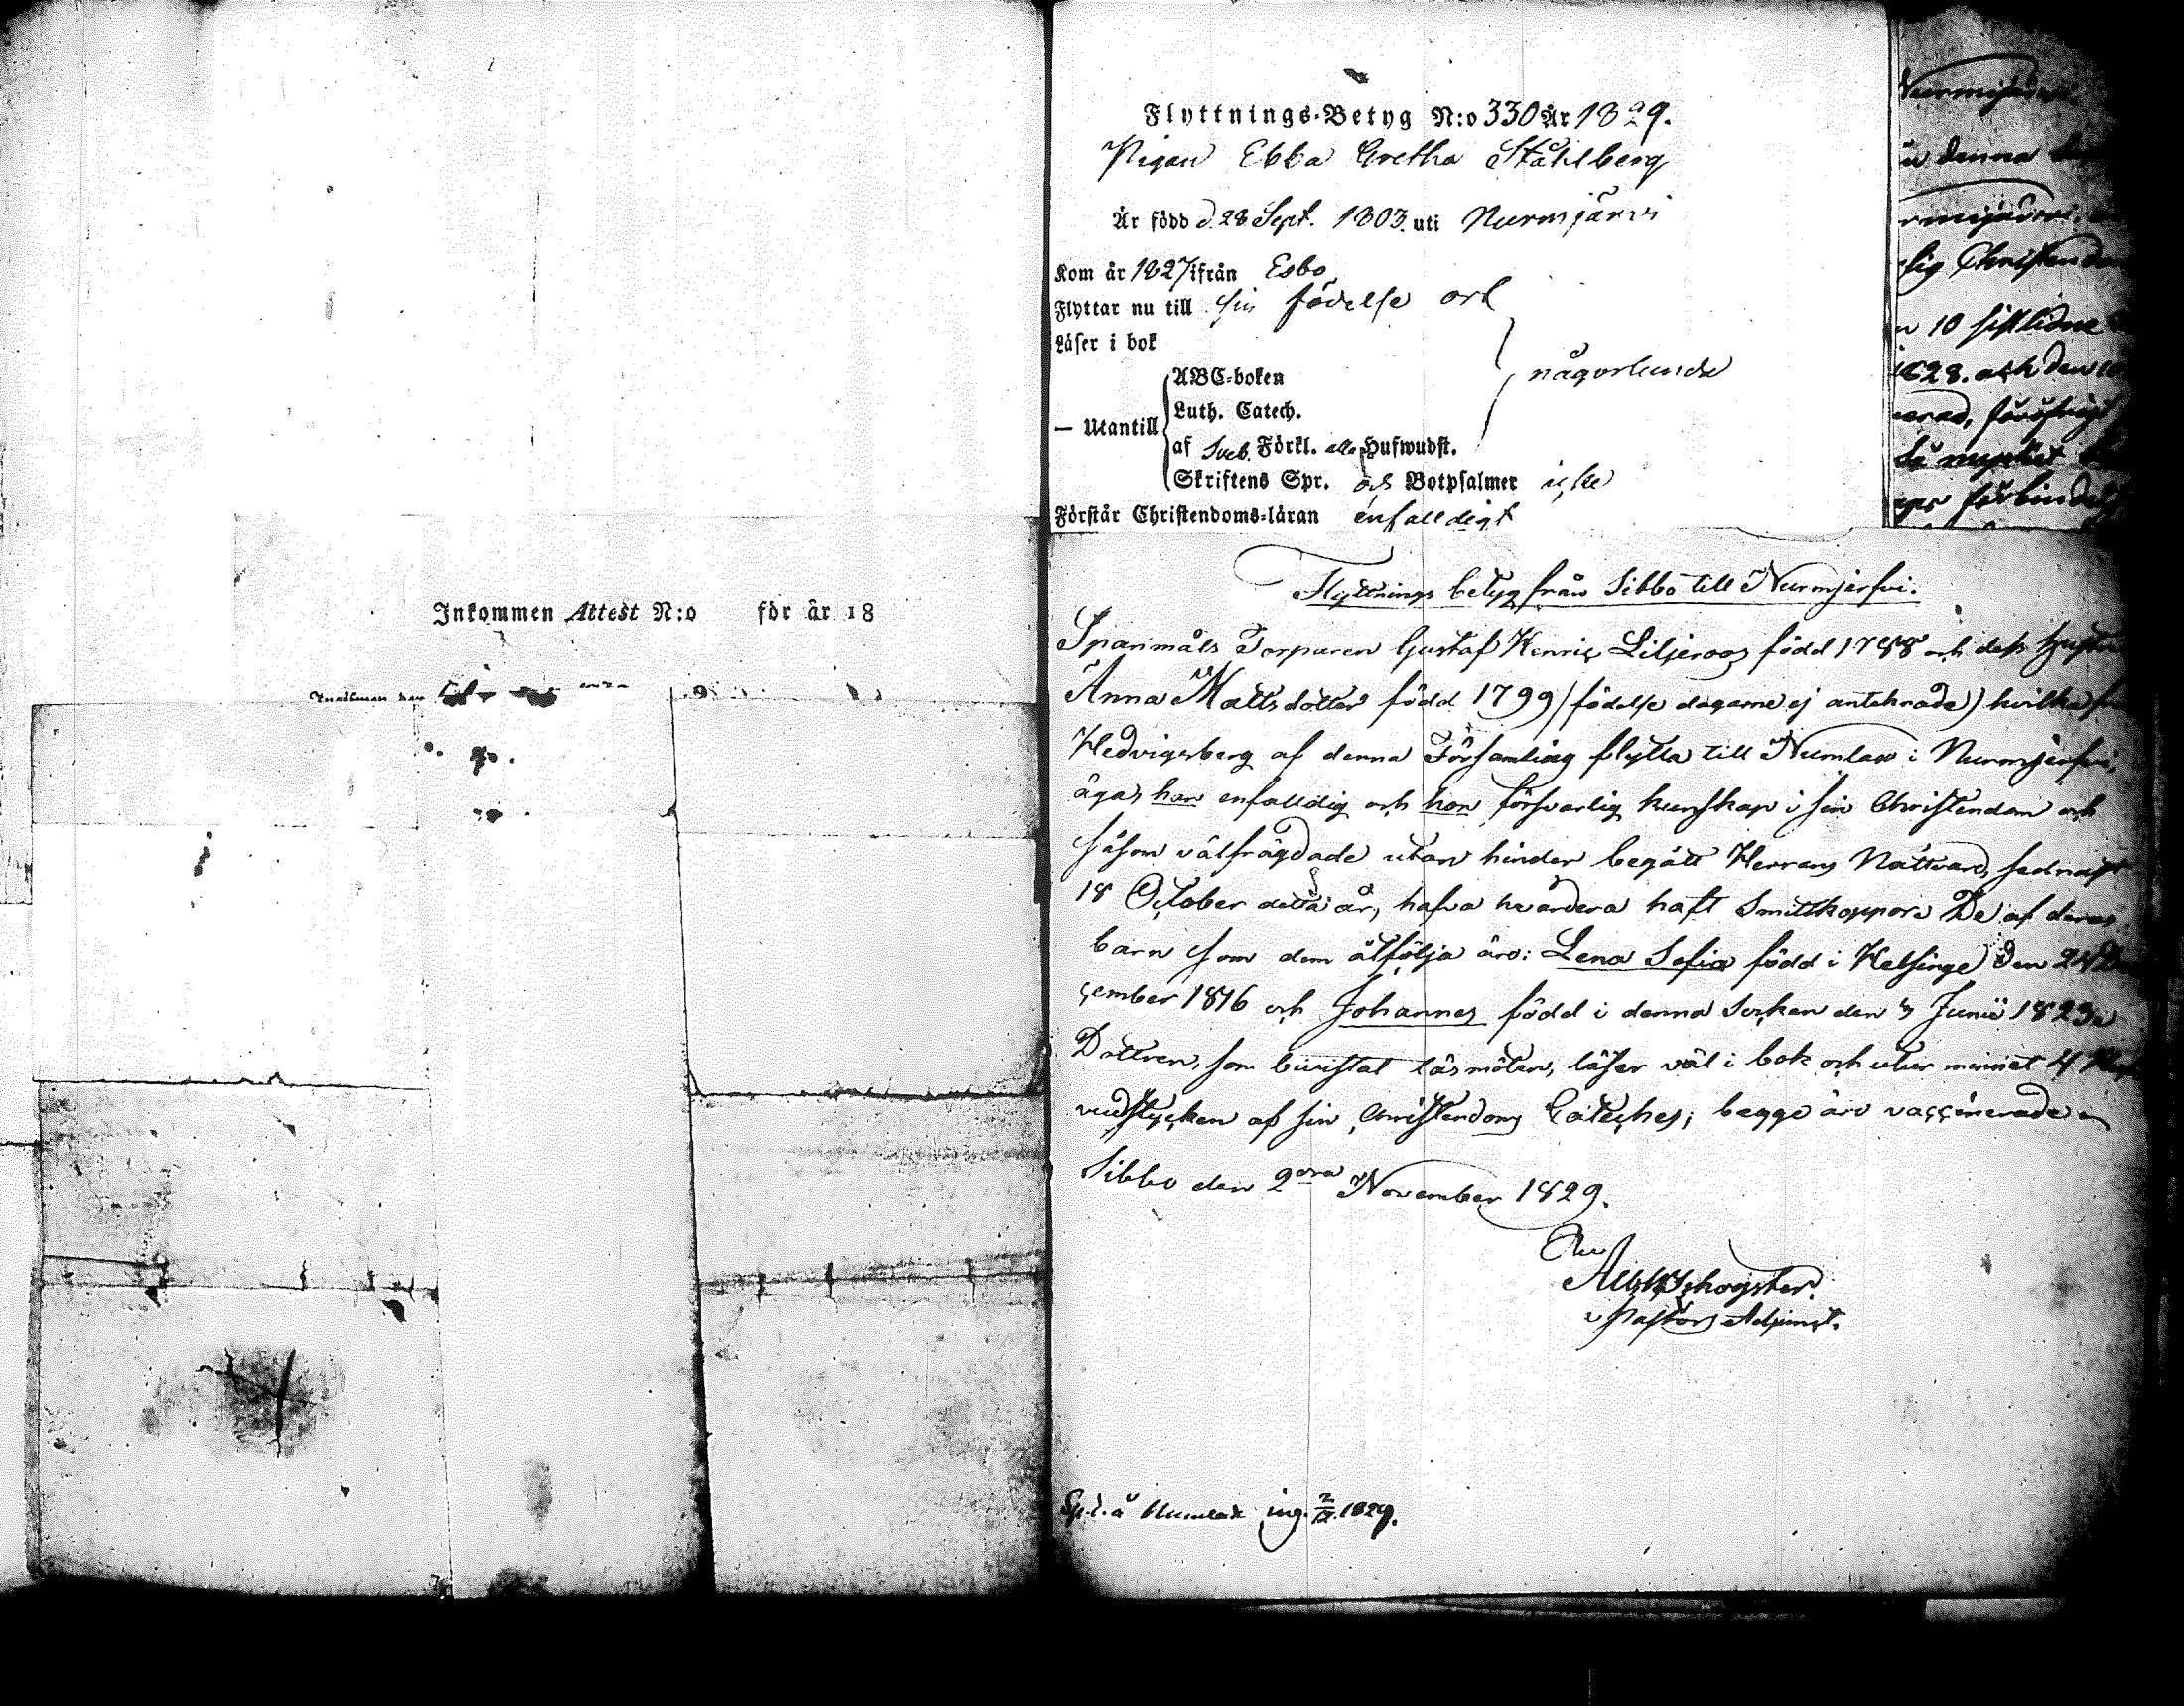 Inkommen Attest N:o för år 18
Flyttnings-Betyg N:o 330 År 1829.
Pigan Ebba Gretha Ståhlberg
Är född d. 28 Sept. 1803. uti Nurmjärvi
Kom år 1827 ifrån Esbo
Flyttar nu till sin födelse ort
Läser i bok
ABC-boken
Luth. Catech.
någorlunda
— Utantill
af Sveb. Förkl. alla Hufwudst.
Skriftens Spr. och Botpsalmer icke
Förstår Christendoms-läran enfalldigt
Nurmijärvi
denna
rmijärvi
lig Christendom
n 10 sistledne
1828. och den
Flyttnings betyg från Sibbo till Nurmjerfvi.
Spanmåls Torparen Gustaf Henric Liljeroos född 1788 och dess hustru
Anna Mattsdotter född 1799 (födelse dagarne ej anteknade) hvilka
Hedvigsberg af denna Församling flytta till Numlax i Nurmjerfvi,
äga, han enfalldig och hon försvarlig kunskap i sin Christendom och
såsom välfrägdade utan hinder begått Herrans Nattvard, sednast
18 October detta år, hafva hvardera haft Smittkoppor. De af deras
barn som dem åtfölja äro: Lena Sofia född i Helsinge den 24 De
cember 1816 och Johannes född i denna Socken den 3 Junii 1823.
Dottren, som bivistat läsmöten, läser väl i bok och utur minnet 4 Huf
vudstycken af sin Christendoms Cateches; begge äro vaccinerade
Sibbo den 2dra November 1829.
v Pastors Adjunct.
å Numlax ing. 1829.